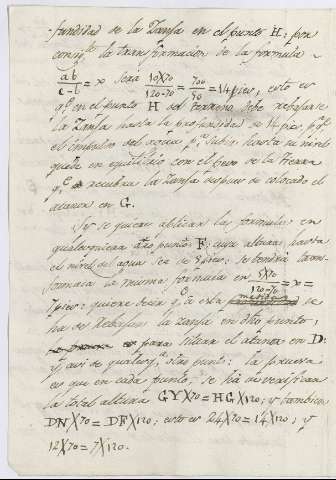 fundidad de la Zanja en el punto H: por
consig.te la transformacion de la formula
ab/c-b = x será 10X70/120-70 = 700/50 = 14 pies, esto es
q.e en el punto H del terreno debe rebajarse
la Zanja hasta la profundidad de 14 pies, p.a q.e
el impulso del agua p.a subir hasta su nivel
quede en equilibrio con el peso de la tierra
q.e recubra la Zanja despues de colocado el
atanor en G.
Si se quiere aplicar la formula en
qualesquiera otro punto F; cuya altura hasta
el nivel del agua sea de 5 pies; se tendrá trans-
formada la misma formula en 5X70/120-70 = x =
7 pies: quiere decir q.e á esta se
ha de rebajar la zanja en dicho punto,
para situar el atanor en D:
y asi de qualesq.a otro punto: la prueva
es que en cada punto, se há de verificar
la total altura GYX70 = HGX120; y tambien
DNX70 = DFX120; esto es 24X70 = 14X120; y
12X70 = 7X120.